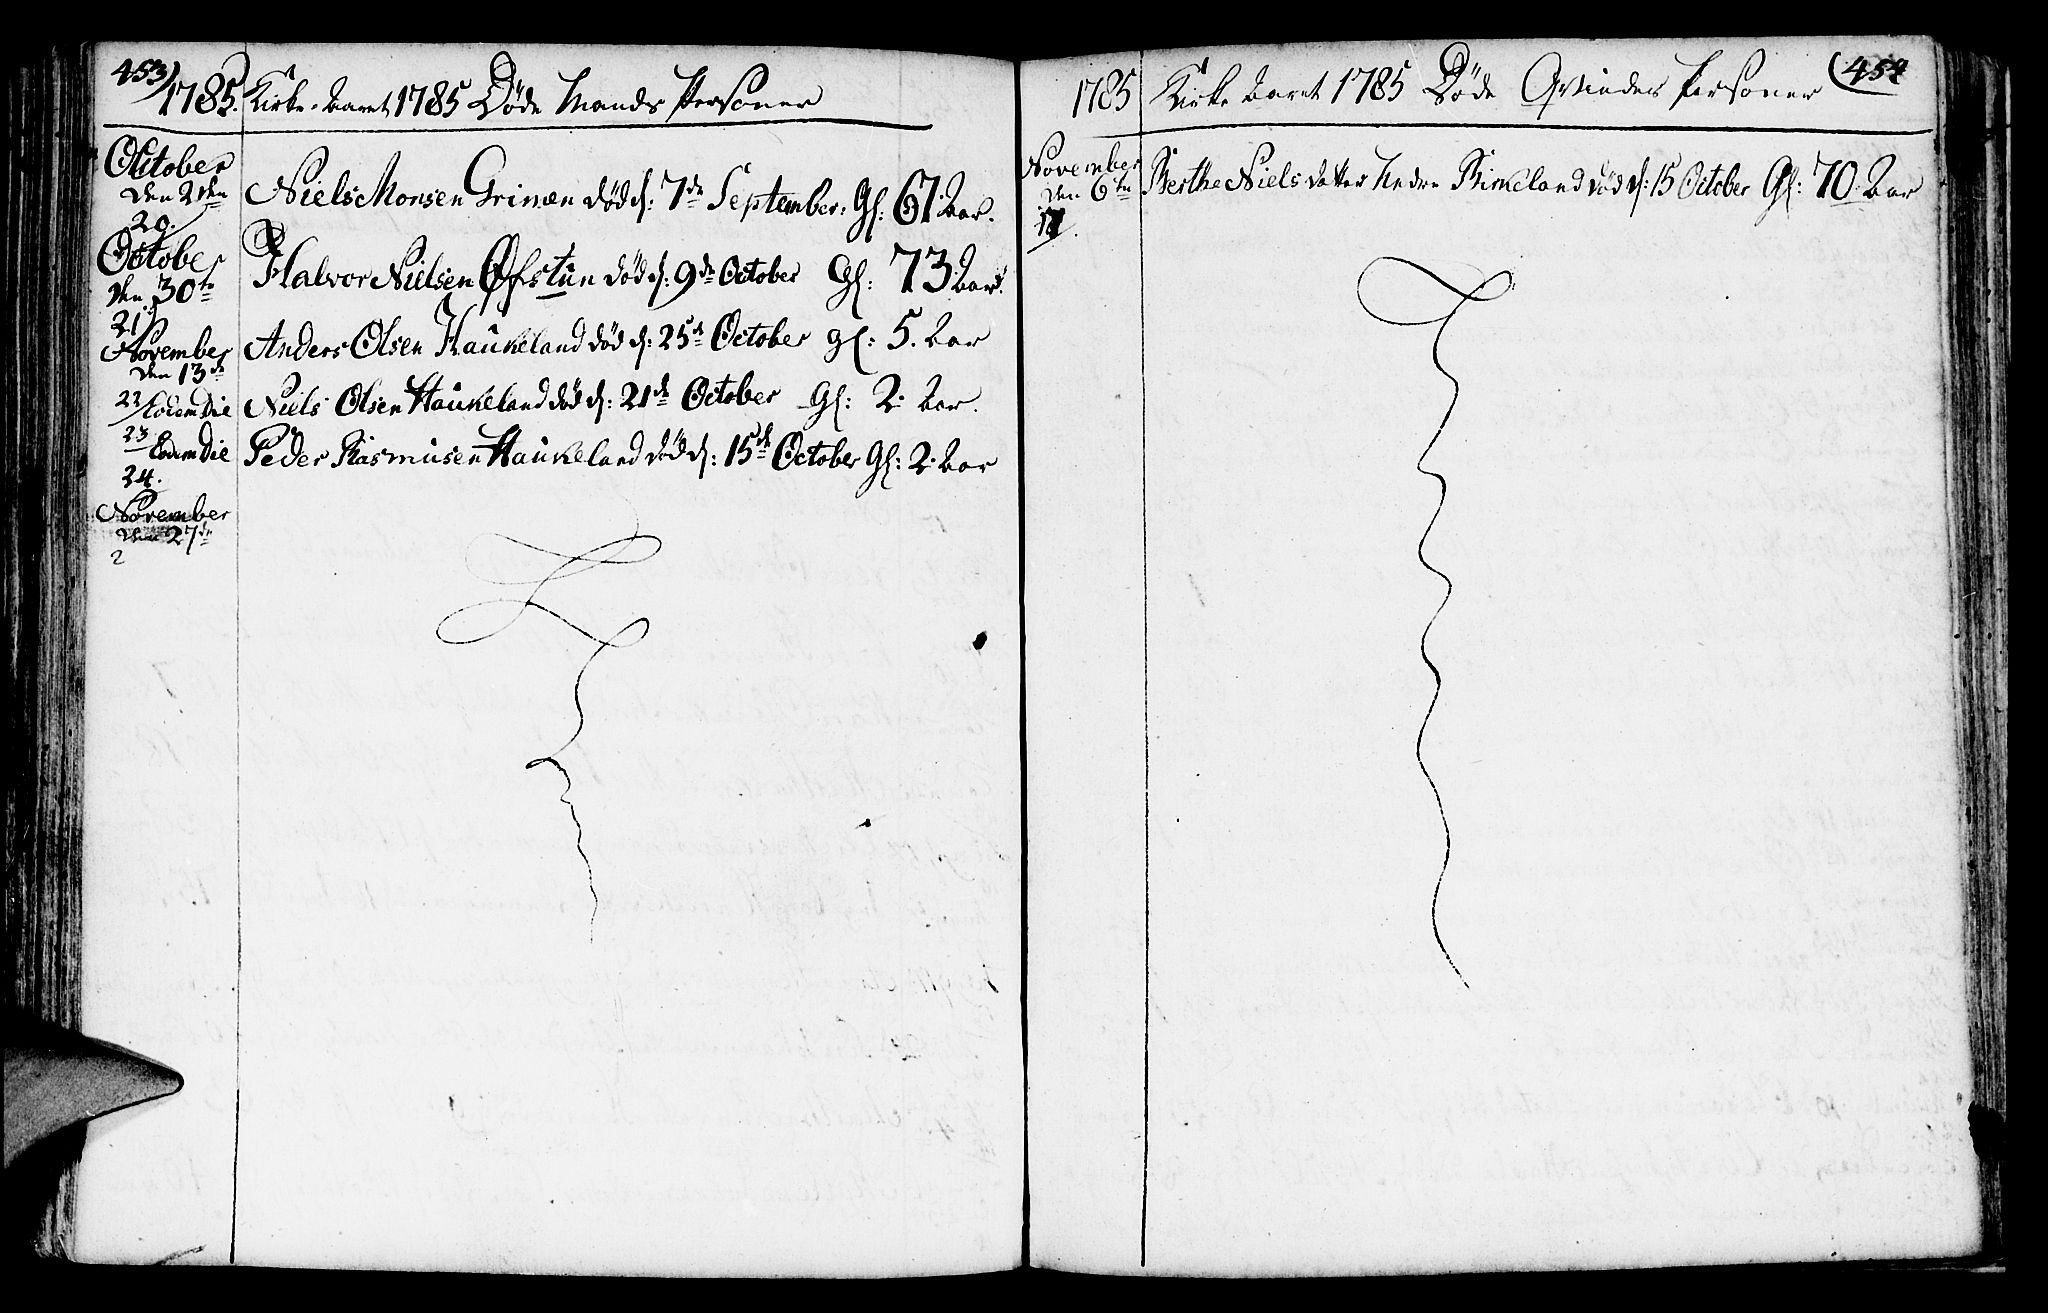 453)
1785. Kirke-Aaret 1785 Døde Mands Personer
October
den 2den Niels Monsen Grimen død d: 7de September. Gl: 67. Aar.
20.
October
den 30te Halvor Nielsen Øfstun død d: 9de October Gl: 73. Aar.
21.
November Anders Olsen Haukeland død d: 25de October gl: 5. Aar
den 13de
22/ Eodem Die Niels Olsen Haukeland død d: 21de October Gl: 2. Aar.
23.
Eodem Die Peder Rasmusen Haukeland død d: 15de October Gl: 2. Aar
24.
November
den 27de
2
1785 Kirke Aaret 1785 Døde Qvindes Personer (454
November
den 6te Berthe Niels datter Indre Birkeland død d: 15 October Gl: 70. Aar